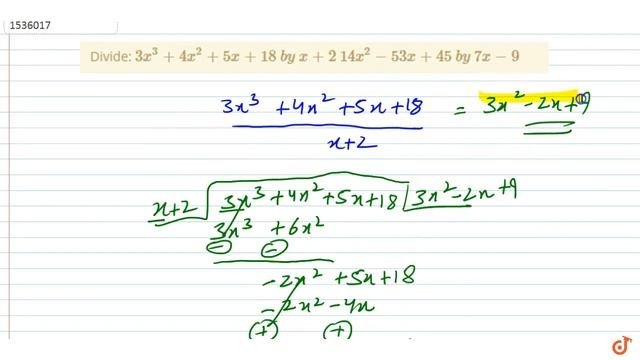 1536017
Divide: 3x³ + 4x² + 5x + 18 by x + 2 14x² − 53x + 45 by 7x − 9
3x³ + 4x² + 5x + 18 = 3x² − 2x + 9
x+2
x+2 3x³ + 4x² + 5x + 18 3x² − 2x + 9
3x³ + 6x²
− −
− 2x² + 5x + 18
− 2x² − 4x
(+) (+)